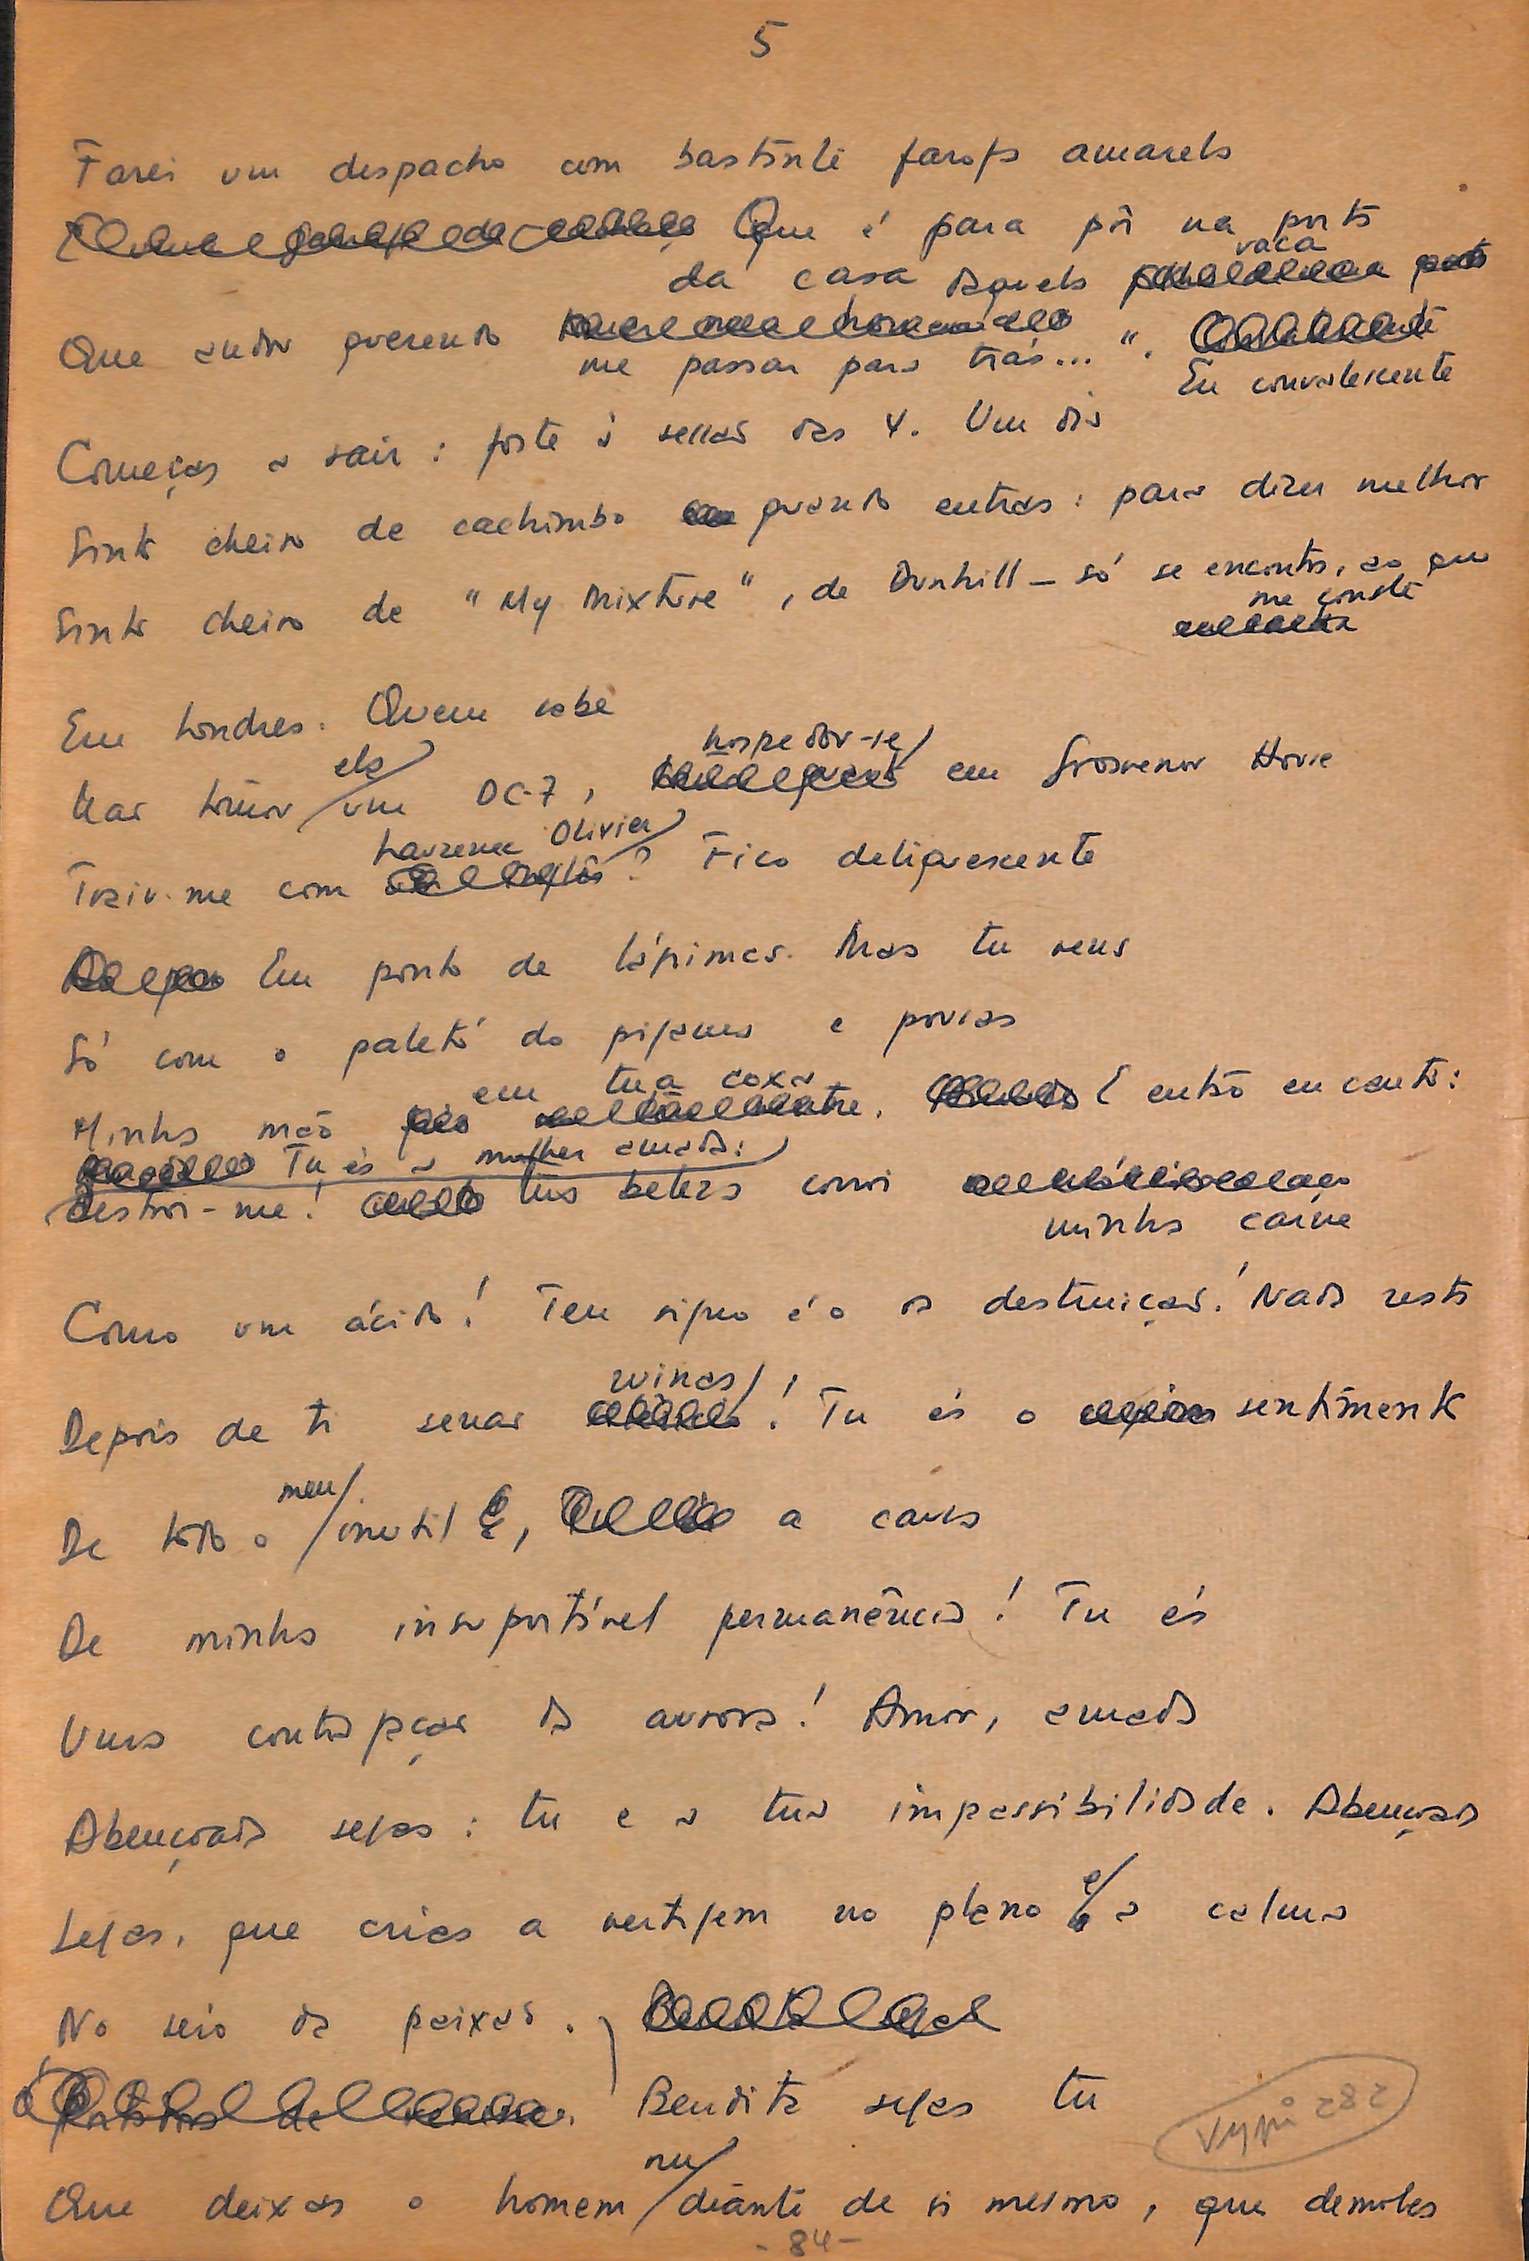 5
Farei um despacho com bastante farofa amarela
Que é para pôr na porta
vaca
da casa daquela
Que anda querendo
me passar para trás... ".
Eu convalescente
Começas a sair: foste à sessão das 4. Um dia
Sinto cheiro de cachimbo quando entras: para dizer melhor
Sinto cheiro de "My Mixture", de Dunhill — só se encontra, ao que
me conste
Em Londres. Quem sabe
ela
Vais tomar um DC-7,
hospedar-se
em Grosvenor House
Laurence Olivier
Trair-me com ? Fico deliquescente
Em ponto de lágrimas. Mas tu vens
Só com o paletó do pijama e pousas
em tua coxa
Minha mão . E então eu canto:
Tu és a mulher amada:
destroi-me! tua beleza corrói
minha carne
Como um ácido! Teu signo é o da destruição! Nada resta
ruinas
Depois de ti senão ! Tu és o sentimento
meu
De todo o inutil , a causa
De minha insuportável permanência! Tu és
Uma contrafação da aurora! Amor, amada
Abençoada sejas: tu e a tua impassibilidade. Abençoada
Sejas, que crias a vertigem no plano e a calma
No seio da paixão.
Bendita sejas tu
VMpi 282
nu
Que deixas o homem diante de si mesmo, que demoles
- 84 -